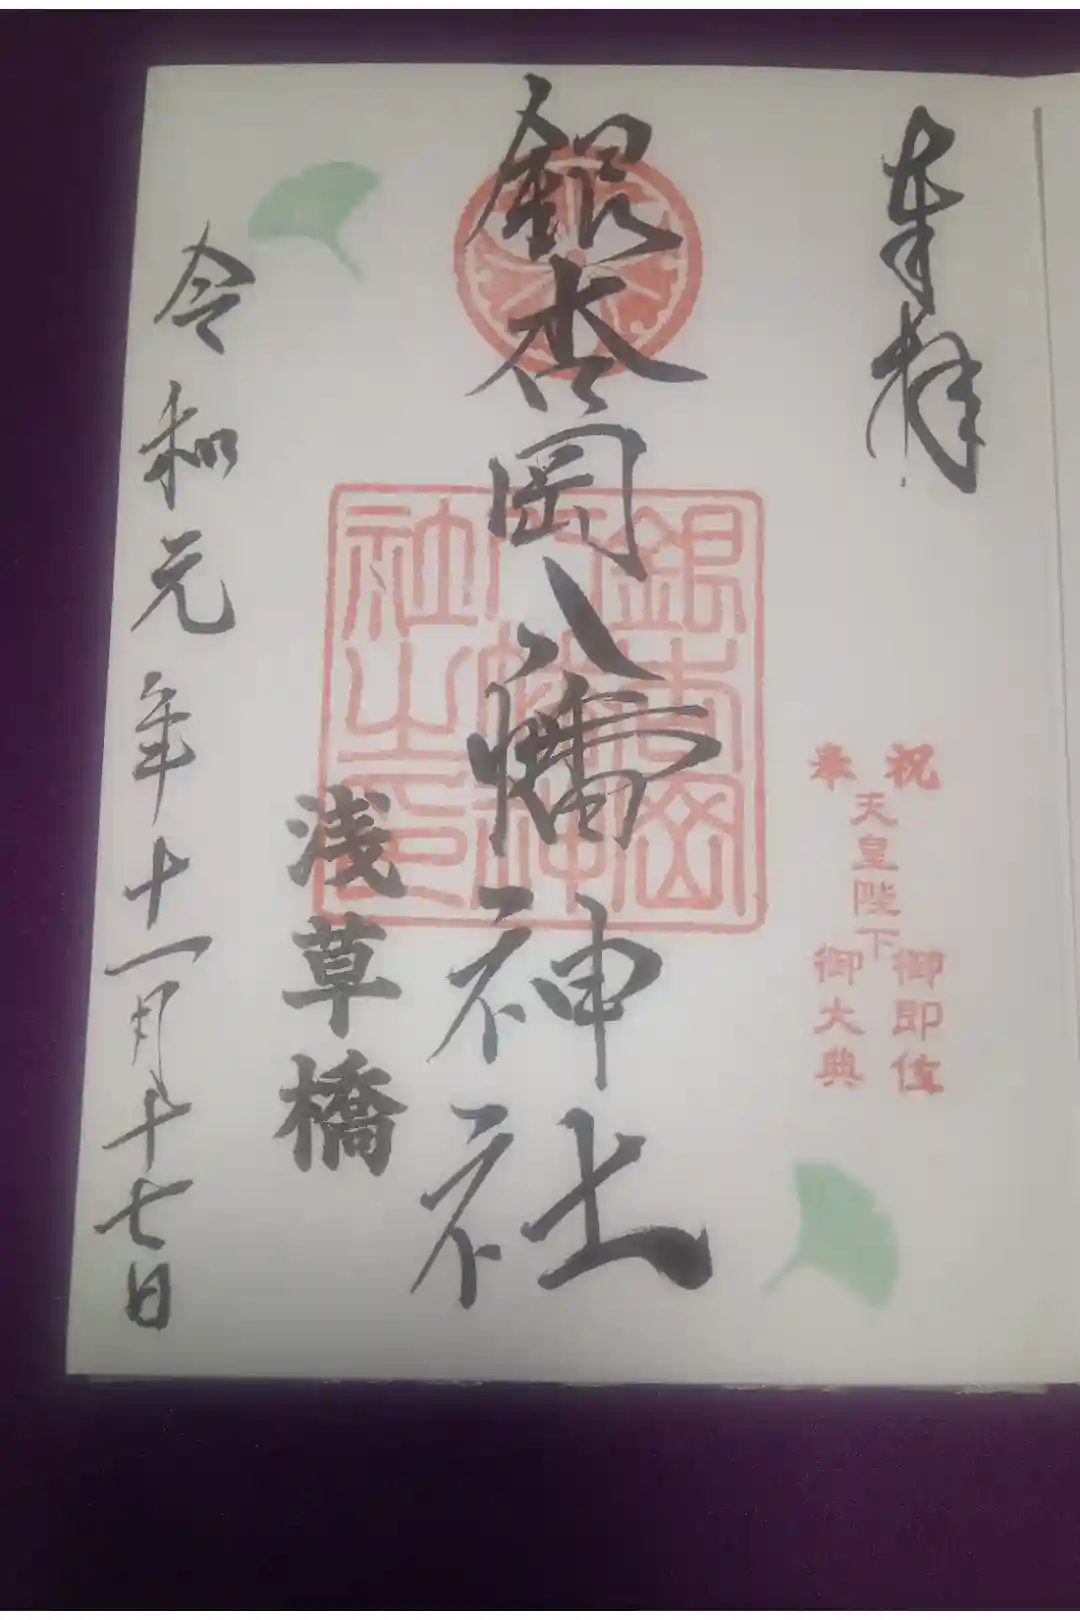 奉拝
奉祝
天皇陛下
御即位
御大典
銀杏岡八幡神社
銀杏岡
八幡神
社之印
浅草橋
令和元年十一月十七日